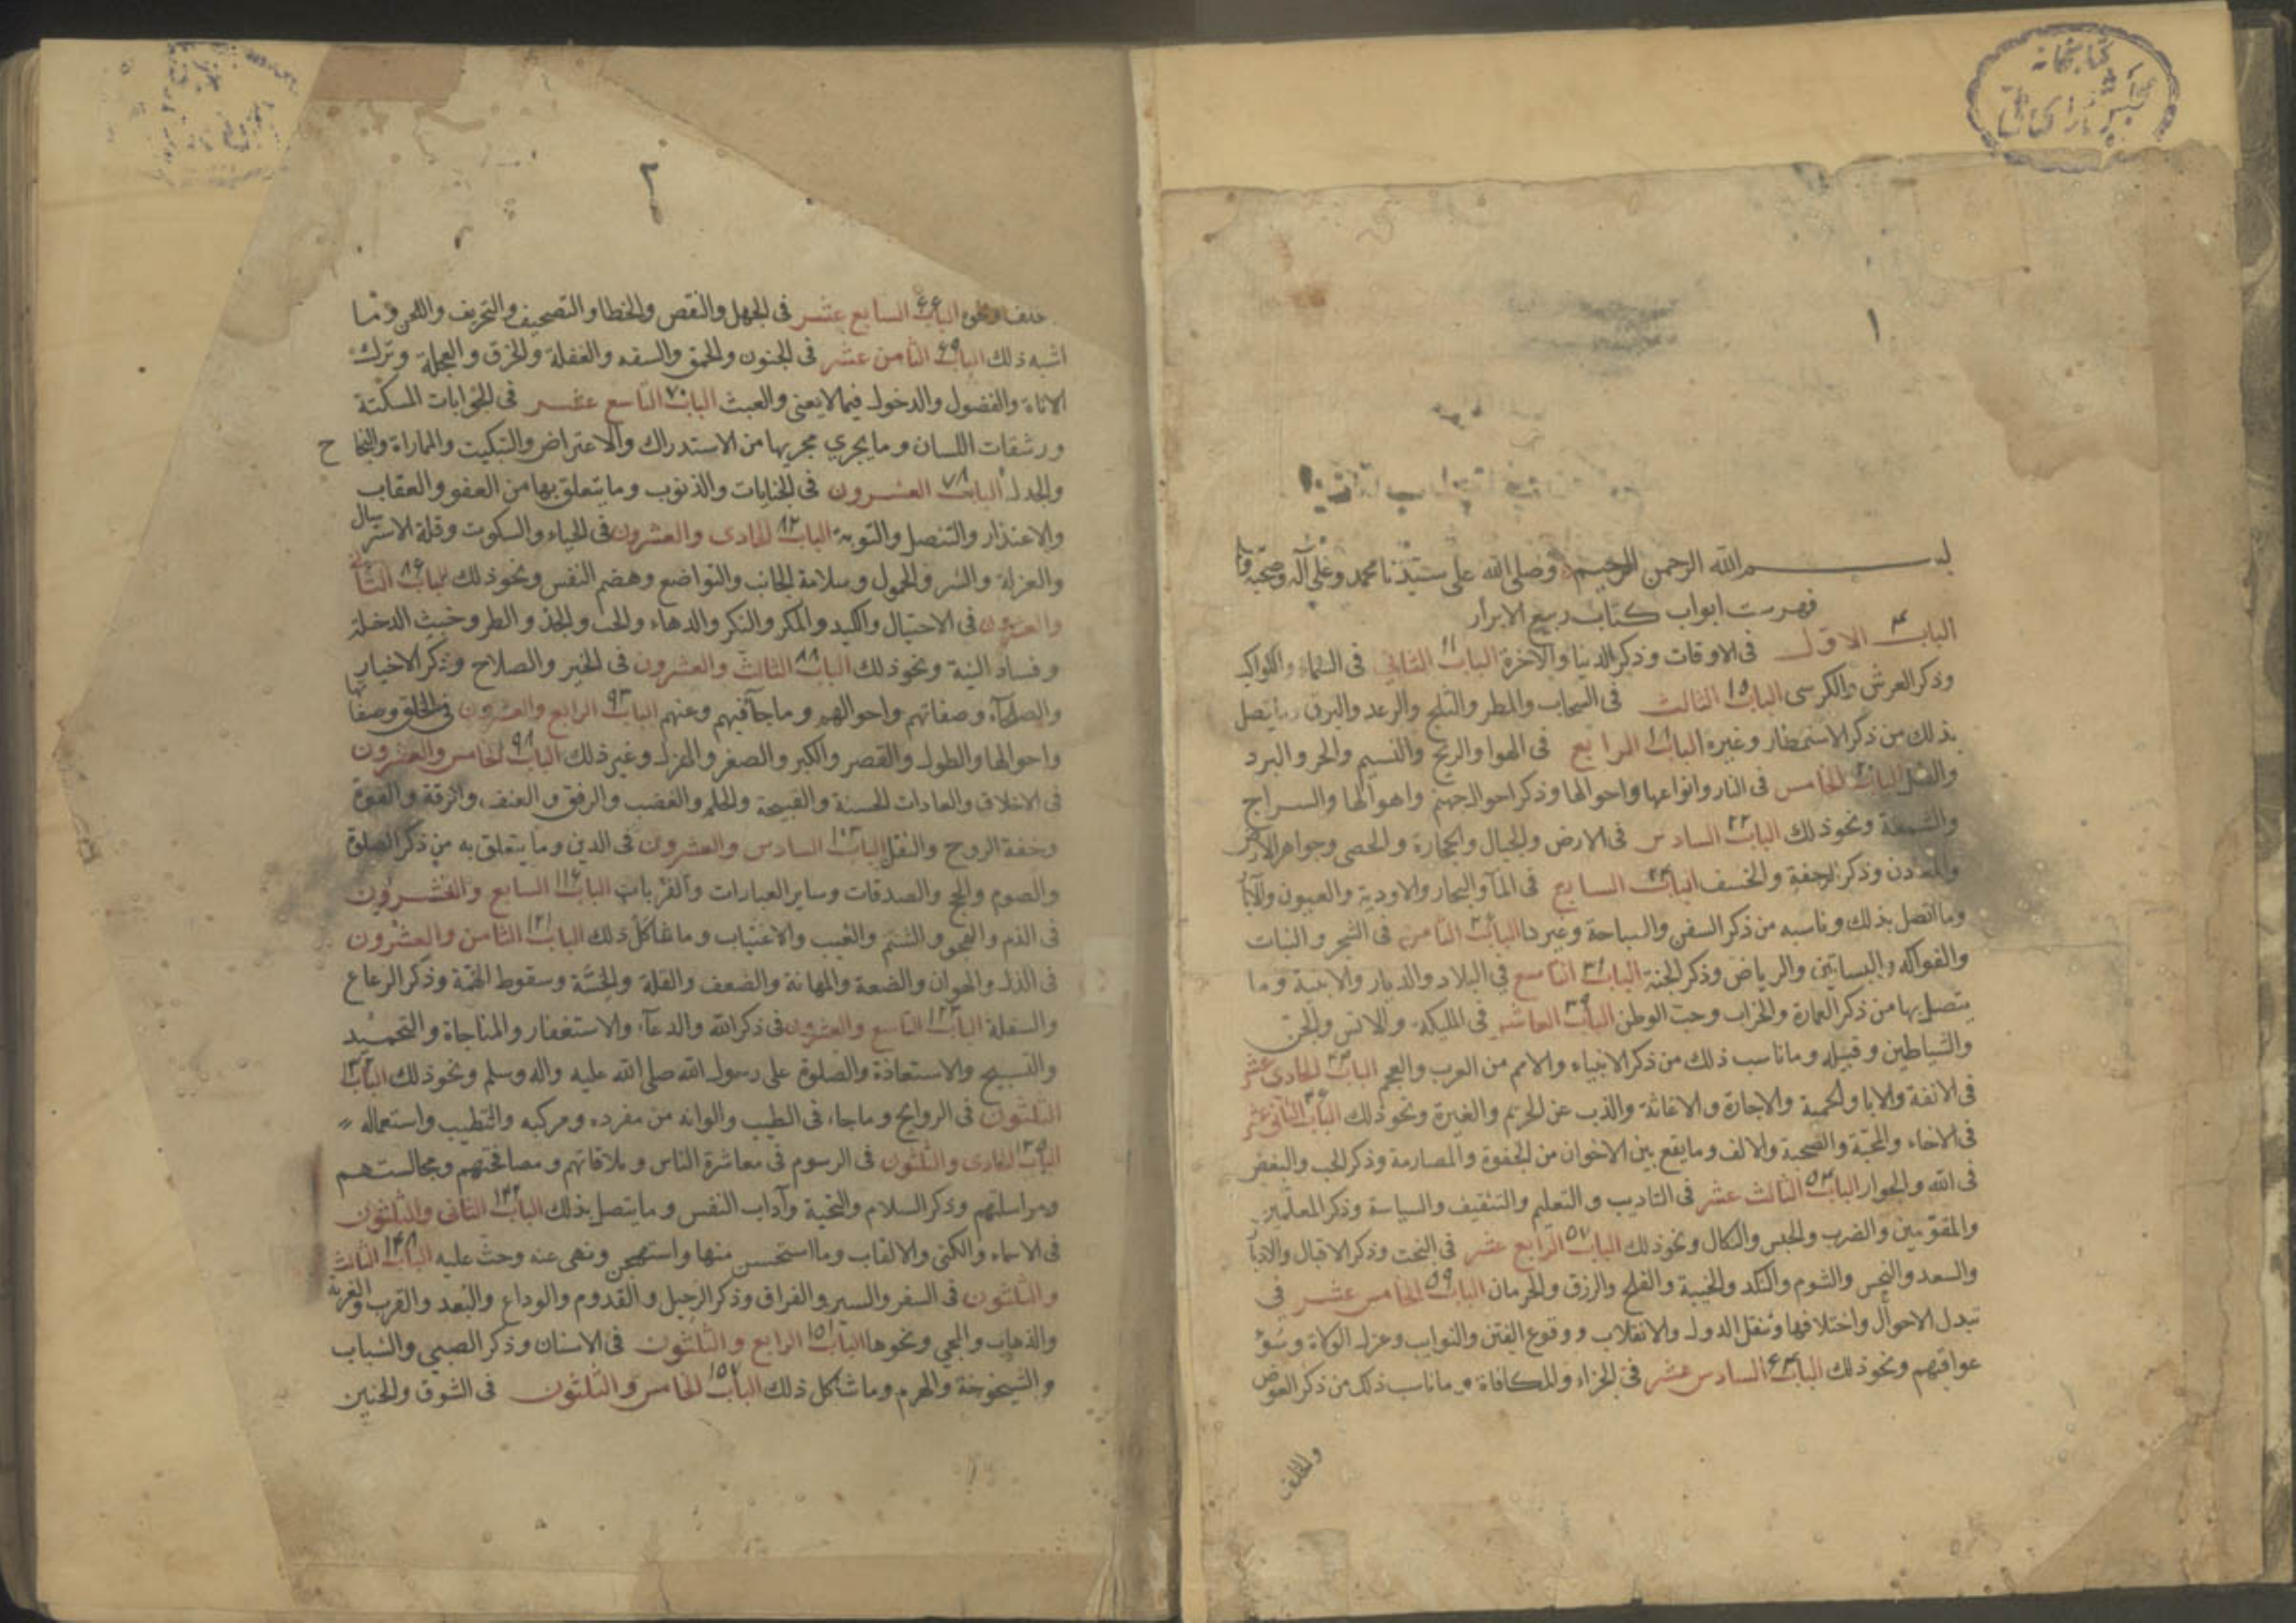 كتابخانه
مجلس شورای ملی
١
بسم الله الرحمن الرحيم وصلى الله على سيدنا محمد وعلى آله وصحبه
فهرست ابواب كتاب ربيع الابرار
الباب الاول ٤ فى الاوقات وذكر الدنيا والآخرة الباب الثانى ١١ فى السماء والكواكب
وذكر العرش والكرسى الباب الثالث ١٥ فى السحاب والمطر والثلج والرعد والبرق وما يتصل
بذلك من ذكر الاستمطار وغيره الباب الرابع ١٨ فى الهوا والريح والنسيم والحر والبرد
والظل الباب الخامس فى النار وانواعها واحوالها وذكر احوال جهنم واهوالها والسراج
والشمعة ونحو ذلك الباب السادس ٢٢ فى الارض والجبال والحجارة والحصى وجواهر
والمعادن وذكر الرجفة والخسف الباب السابع ٢٤ فى المآ والبحار والاودية والعيون والآبار
وما اتصل بذلك وناسبه من ذكر السفن والسباحة وغيرها الباب الثامن فى الشجر والنبات
والفواكه والبساتين والرياض وذكر الجنة الباب التاسع ٣١ في البلاد والديار والابنية وما
يتصل بها من ذكر العمارة والخراب وحب الوطن الباب العاشر ٣٩ فى المليكة والانس والجن
والشياطين وقبيله وما ناسب ذلك من ذكر الانبياء والامم من العرب والعجم الباب الحادى عشر
فى الانفة والابا والحمية والاجارة والاغاثة والذب عن الحريم والغيرة ونحو ذلك الباب الثانى عشر
فى الاخاء والمحبة والصحبة والالف وما يقع بين الاخوان من الجفوة والمصارمة وذكر الحب والبغض
فى الله والجوار الباب الثالث عشر ٥٤ فى التاديب والتعليم والتثقيف والسياسة وذكر المعلمين
والمقومين والضرب والحبس والنكال ونحو ذلك الباب الرابع عشر ٥٧ فى البخت وذكر الاقبال والادبار
والسعد والنحس والشوم والنكد والخيبة والفلح والرزق والحرمان الباب الخامس عشر ٥٩ فى
تبدل الاحوال واختلافها وتنقل الدول والانقلاب ووقوع الفتن والنوايب وعزل الولاة وسوء
عواقبهم ونحو ذلك الباب السادس عشر ٦٤ فى الجزاء والمكافاة وما ناسب ذلك من ذكر العوض
والخلف
٢
خلف ونحوه الباب السابع عشر ٦٦ فى الجهل والنقص والخطا والتصحيف والتحريف واللحن وما
اشبه ذلك الباب الثامن عشر ٦٩ فى الجنون والحمق والسفه والغفلة والخرق والعجلة وترك
الاناة والفضول والدخول فيما لا يعنى والعبث الباب التاسع عشر ٧٠ فى الجوابات المسكتة
ورشقات اللسان وما يجري مجريها من الاستدراك والاعتراض والتبكيت والمماراة والحجاج
والجدل الباب العشرون ٧٨ فى الجنايات والذنوب وما يتعلق بها من العفو والعقاب
والاعتذار والتنصل والتوبة الباب الحادى والعشرون ٨٢ فى الحياء والسكوت وقلة الاسترسال
والعزلة والستر والخمول وسلامة الجانب والتواضع وهضم النفس ونحو ذلك الباب الثانى ٨٦
والعشرون فى الاحتيال والكيد والمكر والنكر والدهاء والخب والطر وخبث الدخلة
وفساد النية ونحو ذلك الباب الثالث والعشرون ٨٨ فى الخير والصلاح وذكر الاخيار
والصلحآء وصفاتهم واحوالهم وما جآ فيهم وعنهم الباب الرابع والعشرون ٩٣ فى الخلق وصفاتها
واحوالها والطول والقصر والكبر والصغر والهزل وغير ذلك الباب الخامس والعشرون ٩٨
فى الاخلاق والعادات الحسنة والقبيحة والحلم والغضب والرفق والعنف والرقة والقسوة
وخفة الروح والثقل الباب السادس والعشرون فى الدين وما يتعلق به من ذكر الصلوة
والصوم والحج والصدقات وساير العبارات والقربات الباب السابع والعشرون ١١٦
فى الذم والهجو والشتم والغيب والاغتياب وما شاكل ذلك الباب الثامن والعشرون ١٢١
فى الذل والهوان والضعة والمهانة والضعف والقلة والخسة وسقوط الهمة وذكر الرعاع
والسفلة الباب التاسع والعشرون ١٢٣ فى ذكر الله والدعآء والاستغفار والمناجاة والتحميد
والتسبيح والاستعاذة والصلوة على رسول الله صلى الله عليه واله وسلم ونحو ذلك الباب
الثلثون فى الروايح وما جاء فى الطيب والوانه من مفرده ومركبه والتطيب واستعماله
الباب الحادى والثلثون ١٣٥ فى الرسوم فى معاشرة الناس وملاقاتهم ومصافحتهم ومجالستهم
ومراسلتهم وذكر السلام والتحية وآداب النفس وما يتصل بذلك الباب الثانى والثلثون ١٤٢
فى الاسماء والكنى والالقاب وما استحسن منها واستهجن ونهى عنه وحث عليه الباب الثالث ١٤٨
والثلثون فى السفر والسير والفراق وذكر الرحيل والقدوم والوداع والبعد والقرب والغربة
والذهاب والمجي ونحوها الباب الرابع والثلثون ١٥١ فى الاسنان وذكر الصبى والشباب
والشيخوخة والهرم وما شاكل ذلك الباب الخامس والثلثون ١٥٧ فى الشوق والحنين